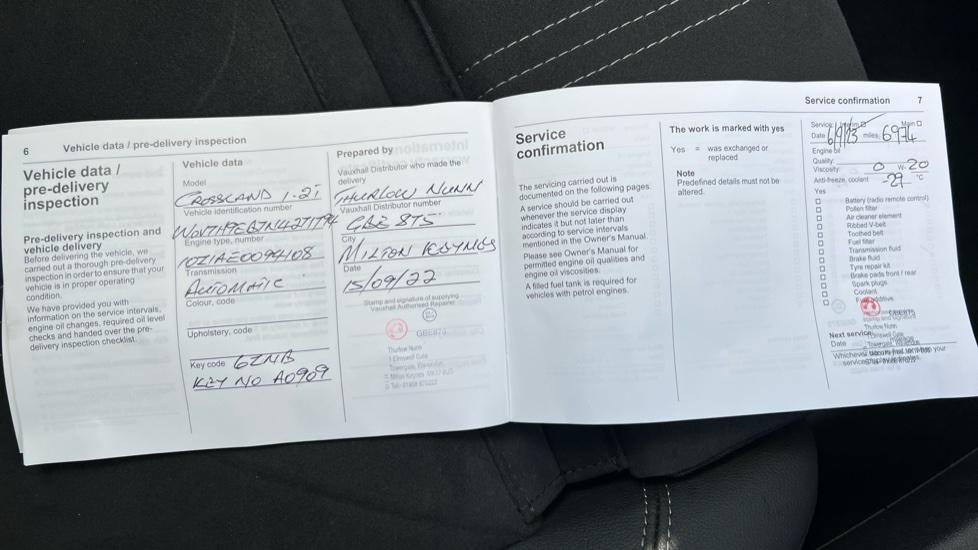 6 Vehicle data / pre-delivery inspection
Vehicle data /
pre-delivery
inspection
Pre-delivery inspection and
vehicle delivery
Before delivering the vehicle, we
carried out a thorough pre-delivery
inspection in order to ensure that your
vehicle is in proper operating
condition.
We have provided you with
information on the service intervals,
engine oil changes, required oil level
checks and handed over the pre-
delivery inspection checklist.
Vehicle data
Model
CROSSLAND 1.2i
Vehicle identification number
Engine type, number
10Z1AE0094408
Transmission
AUTOMATIC
Colour, code
Upholstery, code
Key code 6ZNB
KEY NO A0909
Prepared by
Vauxhall Distributor who made the
delivery
THURLOW NUNN
Vauxhall Distributor number
GBE 875
City
MILTON KEYNES
Date
15/09/22
Stamp and signature of supplying
Vauxhall Authorised Repairer
GBE875
Thurlow Nunn
Service confirmation 7
Service
confirmation
The servicing carried out is
documented on the following pages.
A service should be carried out
whenever the service display
indicates it but not later than
according to service intervals
mentioned in the Owner's Manual.
Please see Owner's Manual for
permitted engine oil qualities and
engine oil viscosities.
A filled fuel tank is required for
vehicles with petrol engines.
The work is marked with yes
Yes = was exchanged or
replaced
Note
Predefined details must not be
altered.
Service: Interim Main
Date miles 6974
Engine oil
Quality:
Viscosity: 0 W- 20
Anti-freeze, coolant -29 °C
Yes
Battery (radio remote control)
Pollen filter
Air cleaner element
Ribbed V-belt
Toothed belt
Fuel filter
Transmission fluid
Brake fluid
Tyre repair kit
Brake pads front / rear
Spark plugs
Coolant
Fuel additive
GBE875
Stamp and signature
Thurlow Nunn
Next service
Date